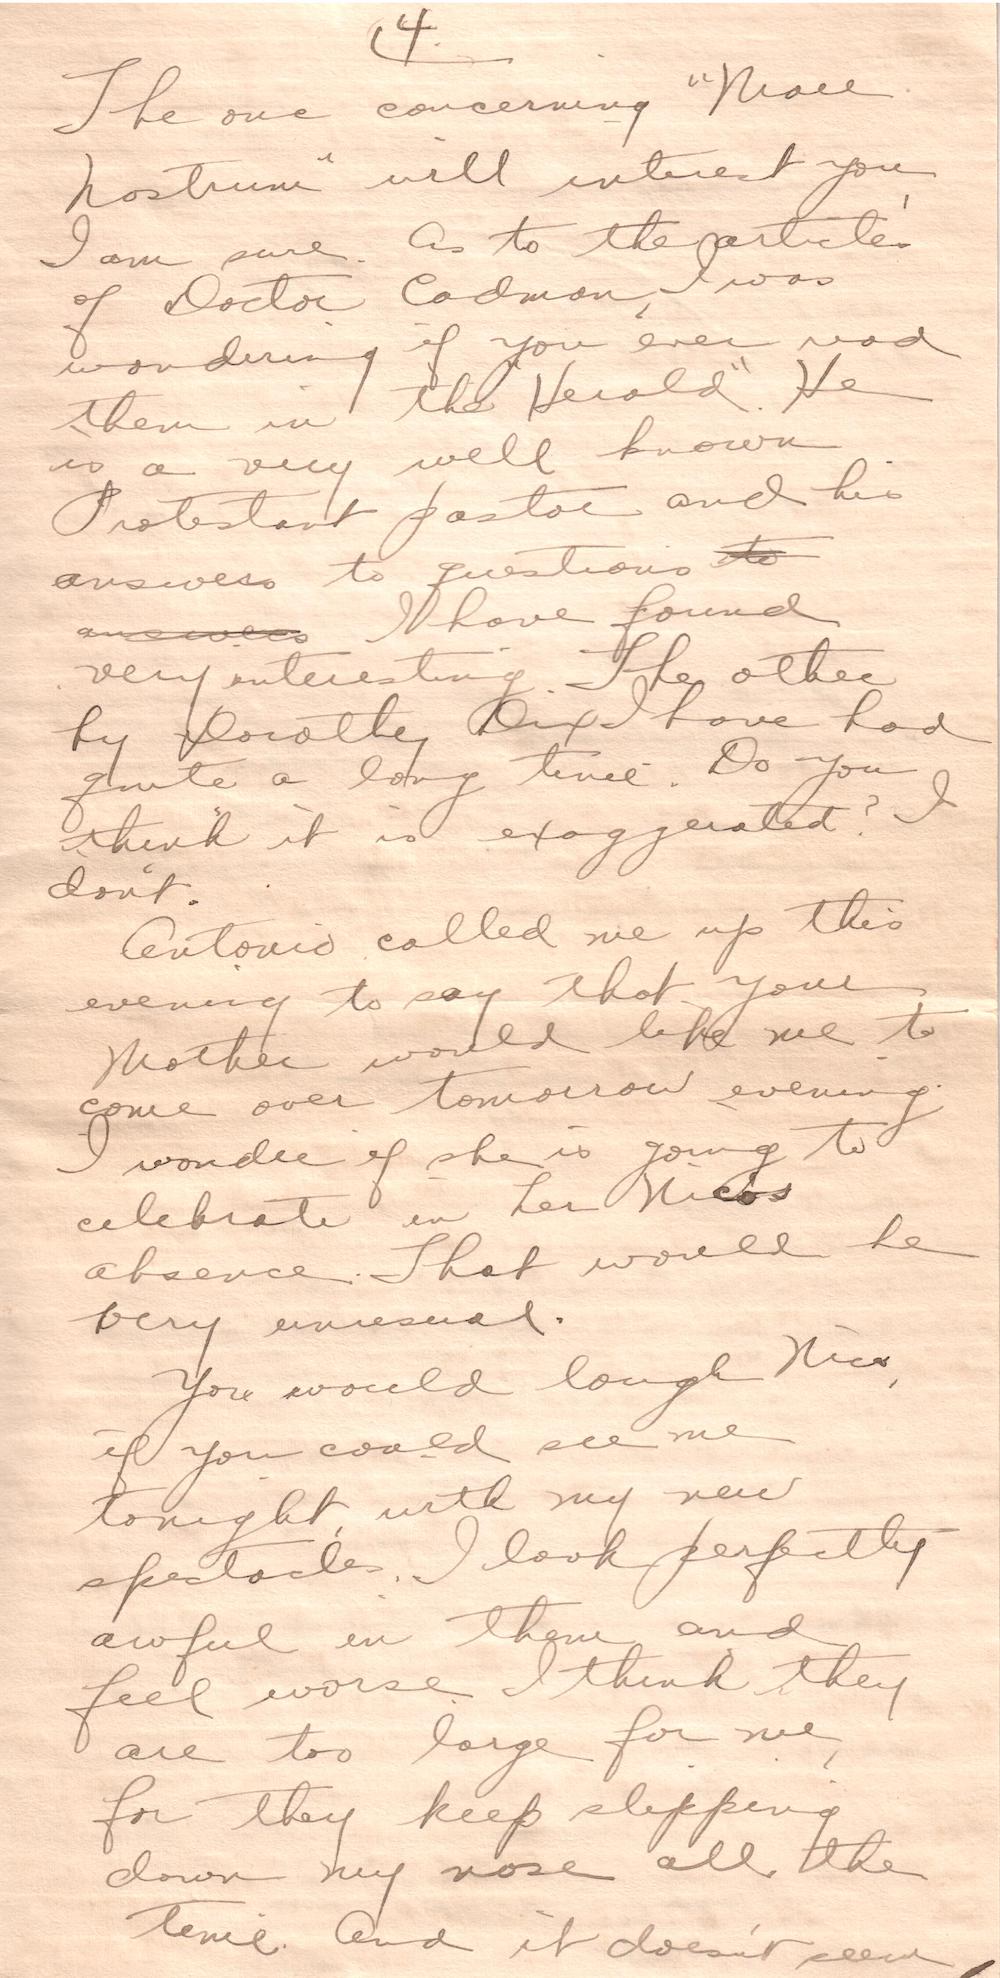 4.
The one concerning "Mare
Nostrum" will interest you,
I am sure. As to the articles
of Doctor Cadman, I was
wondering if you ever read
them in the "Herald". He
is a very well known
Protestant pastor and his
answers to questions to
answers I have found
very interesting. The other
by Dorothy Dix I have had
quite a long time. Do you
think it is exaggerated? I
don't.
Antonio called me up this
evening to say that your
Mother would like me to
come over tomorrow evening.
I wonder if she is going to
celebrate in her Nicos
absence. That would be
very unusual.
You would laugh Nico,
if you could see me
tonight, with my new
spectacles. I look perfectly
awful in them and
feel worse. I think they
are too large for me,
for they keep slipping
down my nose all the
time. And it doesn't seem